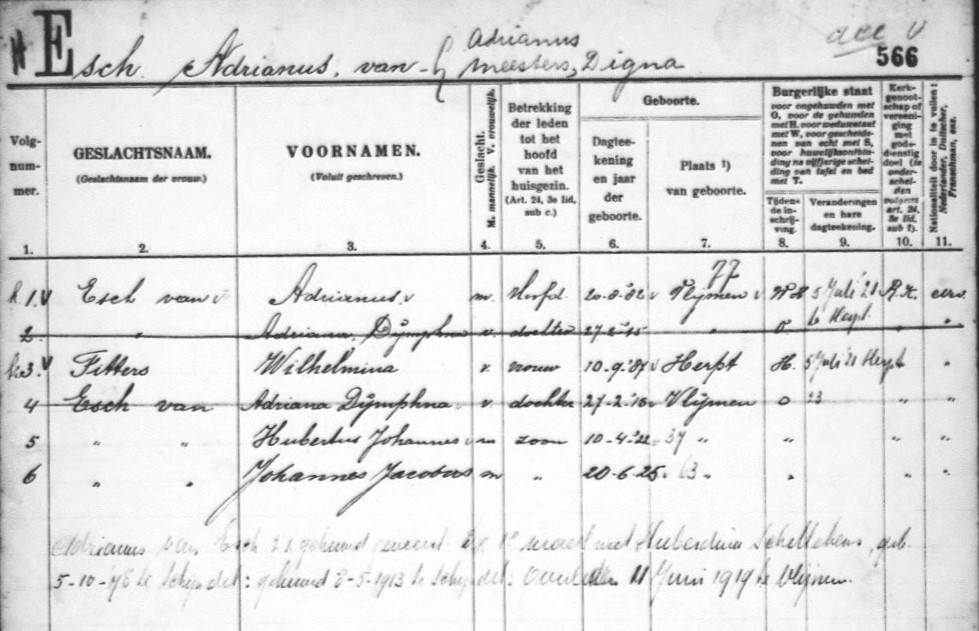 acc V
566
Esch. Adrianus. van- Adrianus
Meesters, Digna
Volg-
num-
mer.
GESLACHTSNAAM.
(Geslachtsnaam der vrouw.)
VOORNAMEN.
(Voluit geschreven.)
Geslacht.
M. mannelijk. V. vrouwelijk.
Betrekking
der leden
tot het
hoofd
van het
huisgezin.
(Art. 24, 3e lid,
sub c.)
Geboorte.
Dagtee-
kening
en jaar
der
geboorte.
Plaats 1)
van geboorte.
Burgerlijke staat
voor ongehuwden met
O, voor de gehuwden
met H. voor weduwstaat
met W, voor gescheide-
nen van echt met S,
voor huwelijksontbin-
ding na vijfjarige schei-
ding van tafel en bed
met T.
Tijdens
de in-
schrij-
ving.
Veranderingen
en hare
dagteekening.
Kerk-
genoot-
schap of
vereeni-
ging
met
gods-
dienstig
doel (te
onder-
schei-
den
volgens
art. 24,
3e lid,
sub f.)
Nationaliteit door in te vullen:
Nederlander, Duitscher,
Franschman, enz.
1. 2. 3. 4. 5. 6. 7. 8. 9. 10. 11.
77
1. V Esch van v Adrianus. v m. Hoofd. 20-8-'82 v Vlijmen v 5 Juli '21 R.K.
2 " Adriana, Dymphna v. dochter " o te Herpt. " "
3. V Fitters Wilhelmina v. vrouw 10-9-'87 v Herpt H. 5 Juli '21 Herpt "
4 Esch van Adriana Dymphna. v. dochter 27-2-'18 v Vlijmen o 23 " "
5 " " Hubertus Johannes v m zoon 10-4-'22 v 37 " " " "
6 " " Johannes Jacobus m " 20-6-25 v 63 " " " "
Adrianus van Esch 2x gehuwd geweest 1e maal met Huberdina Schellekens, geb.
5-10-'78 te Schijndel: gehuwd 2-5-1913 te Schijndel: Overleden 11 Juni 1919 te Vlijmen.